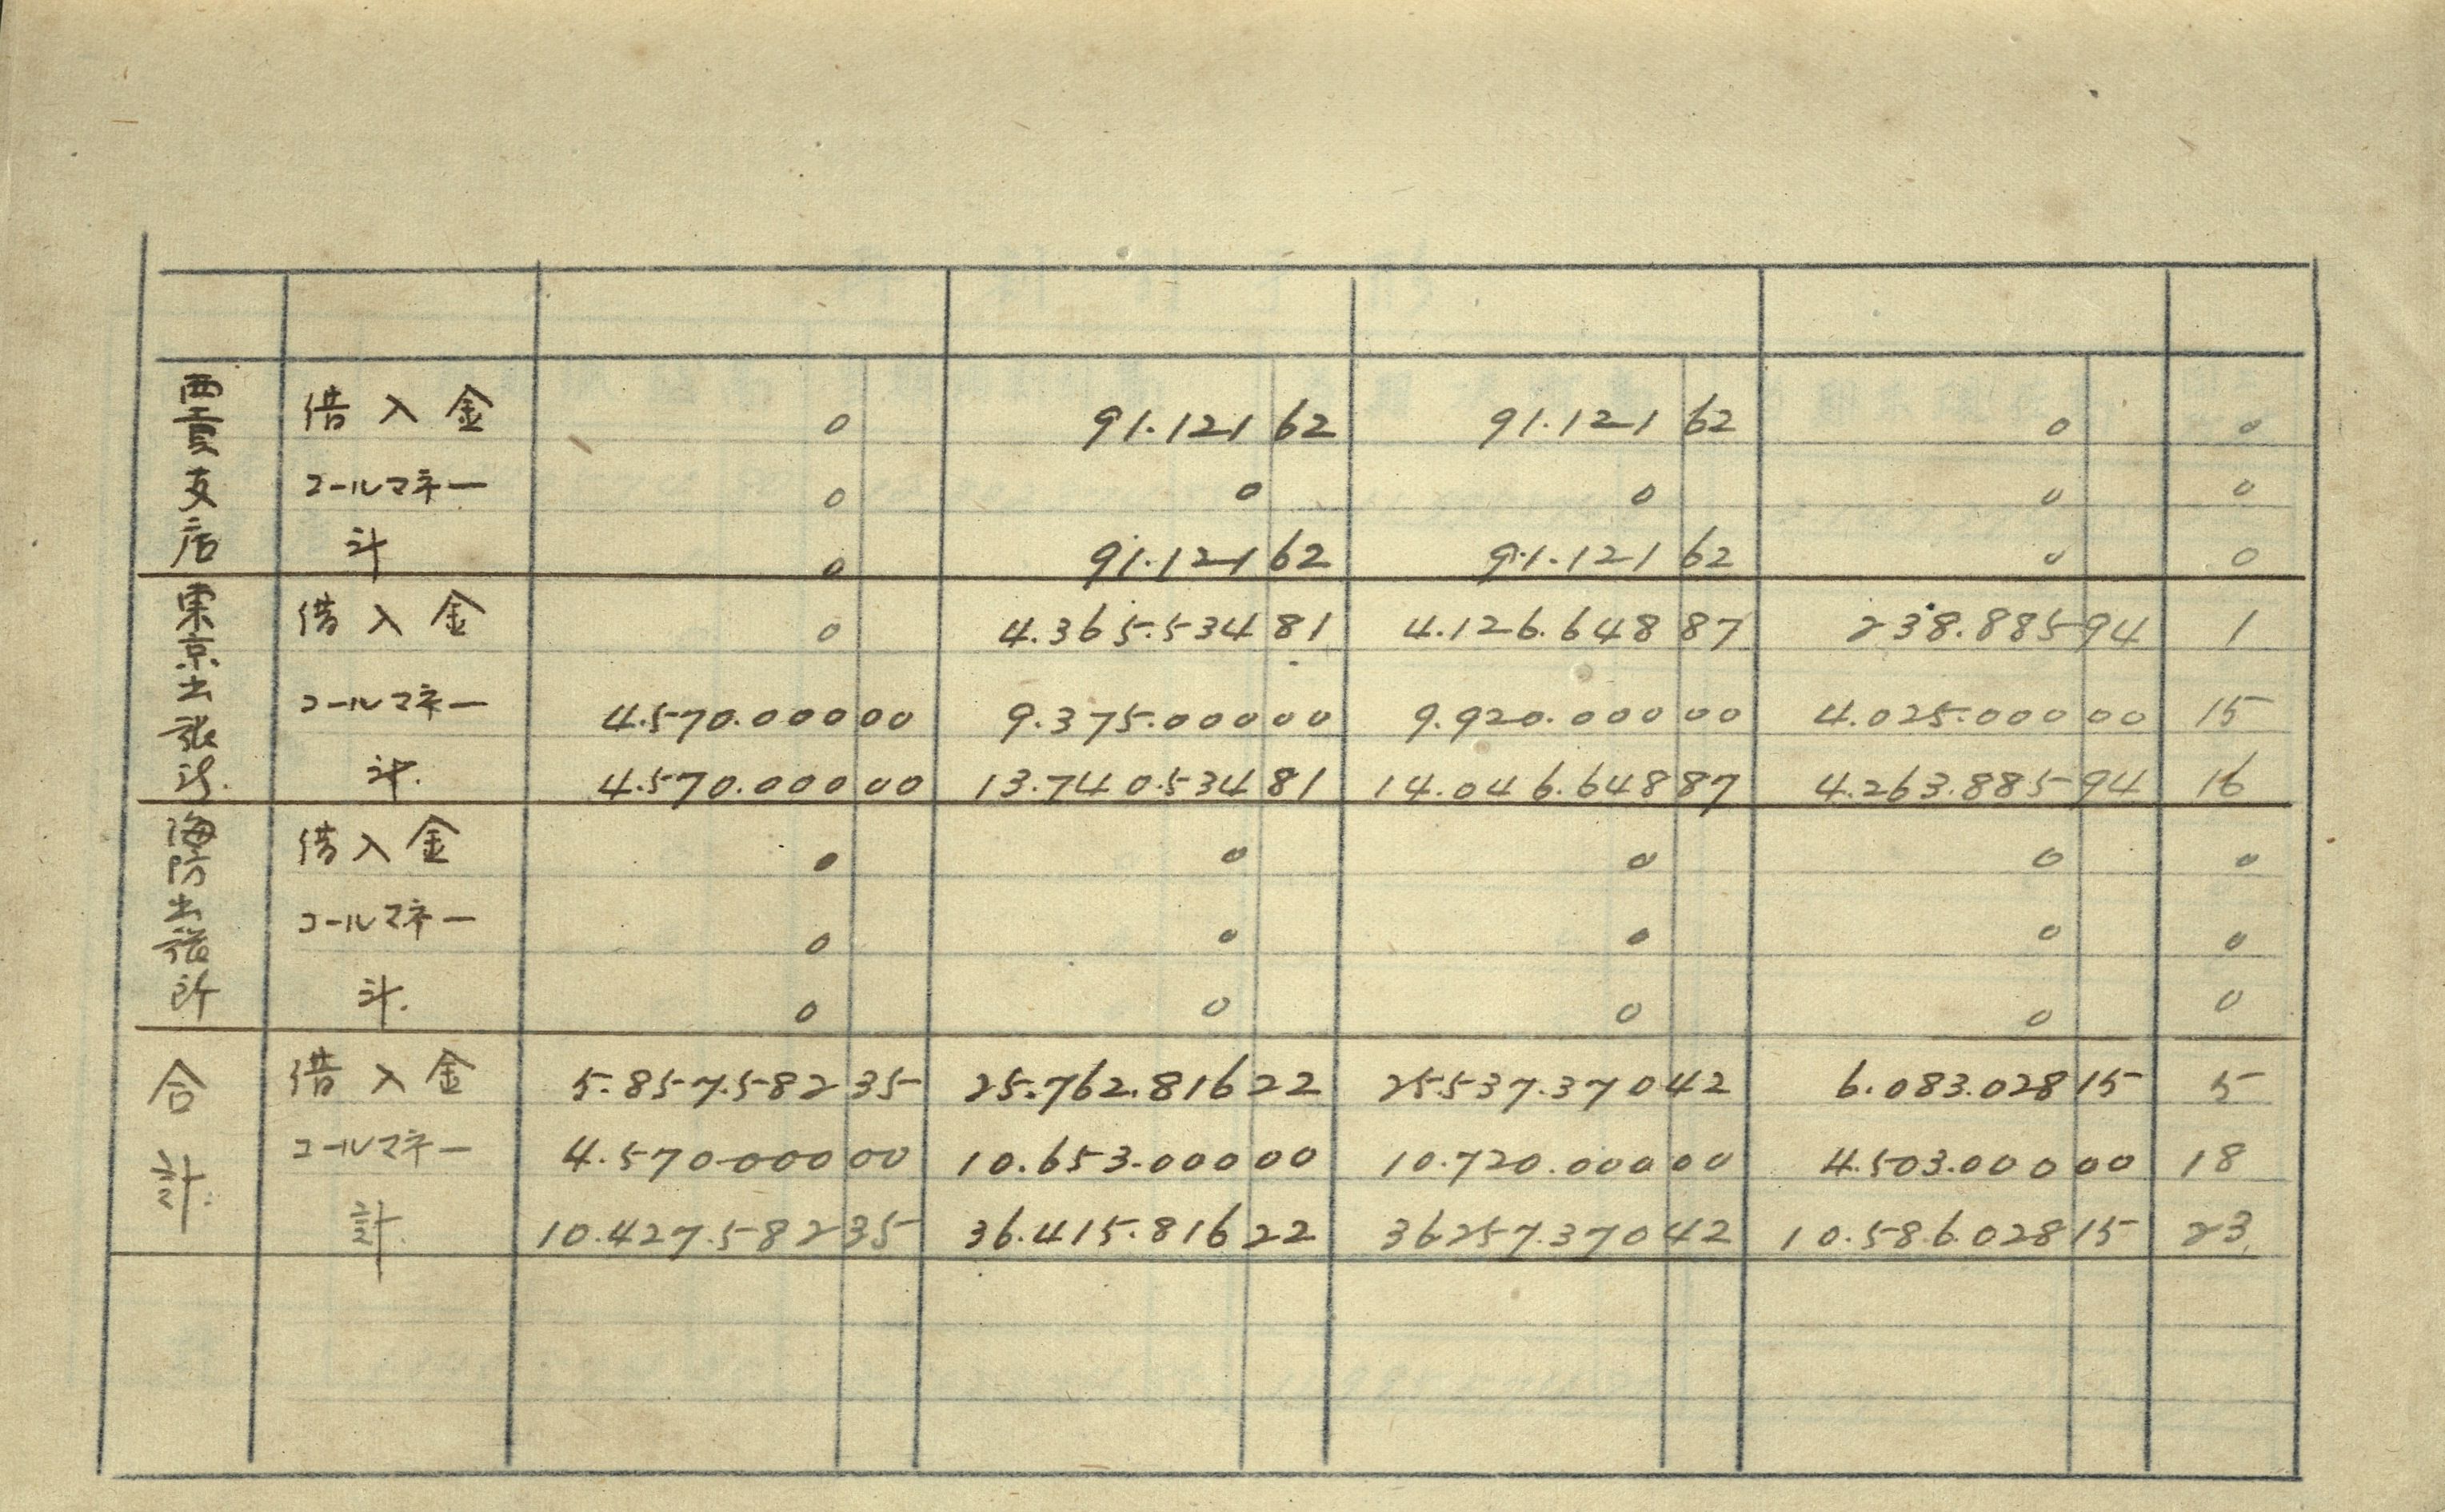 西貢支店 借入金 0 91.121 62 91.121 62 0 0
コールマネー 0 0 0 0 0
計 0 91.121 62 91.121 62 0 0
東京出張所 借入金 0 4.365.534 81 4.126.648 87 238.885 94 1
コールマネー 4.570.000 00 9.375.000 00 9.920.000 00 4.025.000 00 15
計. 4.570.000 00 13.740.534 81 14.046.648 87 4.263.885 94 16
海防出張所 借入金 0 0 0 0 0
コールマネー 0 0 0 0 0
計. 0 0 0 0 0
合計. 借入金 5.857.582 35 25.762.816 22 25.537.370 42 6.083.028 15 5
コールマネー 4.570.000 00 10.653.000 00 10.720.000 00 4.503.000 00 18
計. 10.427.582 35 36.415.816 22 36.257.370 42 10.586.028 15 23